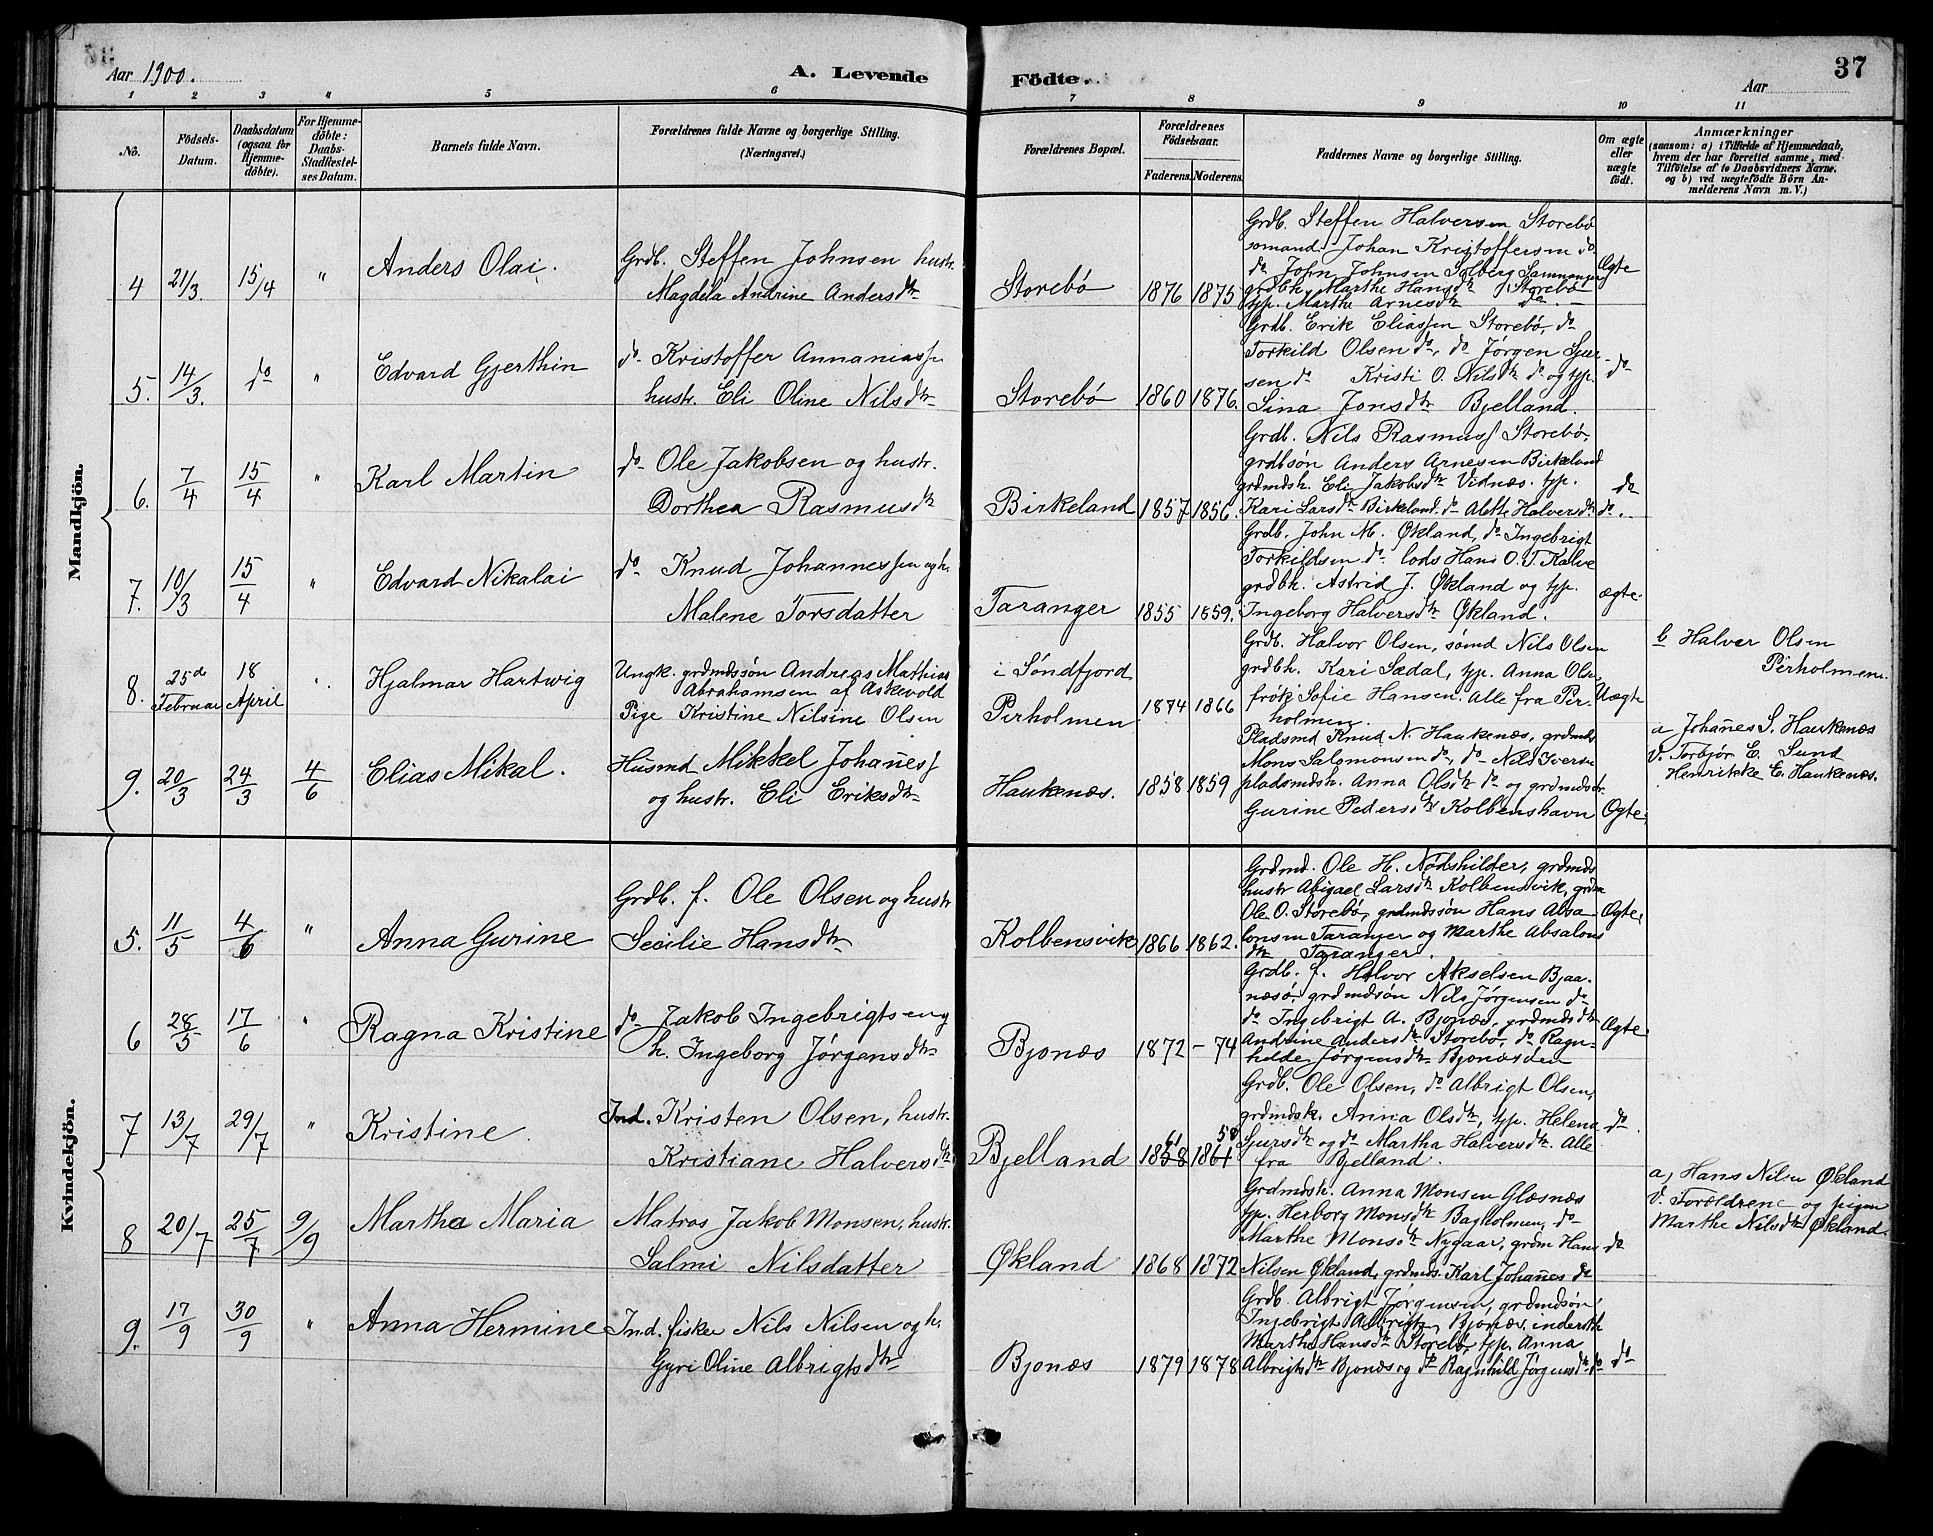 Aar 1900.
A. Levende
Födte.
Aar
37
1 2 3 4 5 6 7 8 9 10 11
No.
Födsels-
Datum.
Daabsdatum
(ogsaa for
Hjemme-
döbte).
For Hjemme-
döbte:
Daabs-
Stadfæstel-
ses Datum.
Barnets fulde Navn.
Forældrenes fulde Navne og borgerlige Stilling.
(Næringsvei.)
Forældrenes Bopæl.
Forældrenes
Födselsaar.
Faderens.
Moderens.
Faddernes Navne og borgerlige Stilling.
Om ægte
eller
uægte
födt.
Anmærkninger
(saasom: a) i Tilfælde af Hjemmedaab,
hvem der har forrettet samme, med
Tilföielse af to Daabsvidners Navne.
og b) ved uægtefödte Börn An-
melderens Navn m. V.)
Mandkjön.
4 21/3. 15/4 " Anders Olai.
Grdb. Steffen Johnsen hustr.
Magdela Andrine Andersdtr
Storebø 1876 1875
Grdb. Steffen Halversen Storebø
sømand Johan Kristoffersen do
do John Johnsen Solberg Samnanger
grdbh. Marthe Hansdtr Storebø
typ. Marthe Arnesdtr do.
Ægte
5. 14/3. do " Edvard Gjerthin
do Kristoffer Annaniass
hustr. Eli Oline Nilsdtr
Storebø 1860 1876.
Grdb. Erik Eliassen Storebø, do
Torkild Olsen do, do Jørgen Sjur-
sen do Kristi O. Nilsdtr do og typ.
Sina Jonsdtr Bjelland.
do
6. 7/4 15/4 " Karl Martin
do Ole Jakobsen og hustr.
Dorthea Rasmusdtr
Birkeland 1857 1856.
Grdb. Nils Rasmuss Storebø,
grdbsøn Anders Arnesen Birkeland
grdmdsh. Eli Jakobsdtr Vidnæs. typ.
Kari Larsdtr Birkeland. do Alette Halversdtr do.
do
7. 10/3 15/4 " Edvard Nikalai
do Knud Johannessen og h.
Malene Torsdatter
Taranger 1855 1859.
Grdb. John M. Økland, do Ingebrigt
Torkildsen do. lods Hans O. T. Kalve
grdbh. Astrid J. Økland og typ.
Ingeborg Halversdtr Økland.
ægte.
8. 25de Februar 18 April Hjalmar Hartwig
Ungk. grdmdssøn Andreas Mathias
Abrahamsen af Askevold
Pige Kristine Nilsine Olsen
i Søndfjord
Pirholmen 1874 1866
Grdb. Halvor Olsen, sømd Nils Olsen
grdbh. Kari Sædal, typ. Anna Olsen
frøk. Sofie Hansen. Alle fra Pir-
holmen.
Uægte
b Halver Olsen
Pirholmen.
9. 20/3 24/3 4/6 Elias Mikal.
Husmd Mikkel Johaness
og hustr. Eli Eriksdtr
Haukenæs. 1858 1859
Pladsmd Knud N. Haukenæs, grdmds
Mons Salomonsen do, do Nils Iversn
pladsmdsh. Anna Olsdtr do og grdmdsdtr.
Gurine Pedersdtr Kolbenshavn
Ægte.
a Johanes S. Haukenæs
v. Torbjør E. Lund
Henrikke E. Haukenæs.
Kvindekjön.
5. 11/5 4/6 " Anna Gurine
Grdb. f. Ole Olsen og hustr
Secilie Hansdtr
Kolbensvik 1866 1862.
Grdmd. Ole H. Nødshilder, grdmds
hustr Abigael Larsdtr Kolbensvik, grdm
Ole O. Storebø, grdmdssøn Hans Absa-
lonsen Taranger og Marthe Absalons
dtr Taranger.
Ægte.
6 28/5 17/6 " Ragna Kristine
do Jakob Ingebrigtsen og
h. Ingeborg Jørgensdtr
Bjonæs 1872 – 74
Grdb. f. Halvor Akselsen Bjaa-
næsø, grdmdsøn Nils Jørgensen do
do Ingebrigt A. Bjonæs, grdmdsdtr
Andrine Andersdtr Storebø, do Ragn-
hilde Jørgensdtr Bjonæsden
Ægte
7 13/7 29/7 " Kristine.
Ind. Kristen Olsen, hustr.
Kristiane Halversdtr
Bjelland 1858 61 1861 58
Grdb. Ole Olsen, do Albrigt Olsen,
grdmdsk. Anna Olsdtr, typ. Helena
Sjursdtr og do Martha Halversdtr. Alle
fra Bjelland.
do.
8 20/7 25/7 9/9 Martha Maria
Matros Jakob Monsen, hustr.
Salmi Nilsdatter
Økland 1868 1872
Grdmdsk. Anna Monsen Glæsnæs
typ. Herborg Monsdtr Bagholmen, do
Marthe Monsdtr Nygaar, grdm Hans
Nilsen Økland, grdmds. Karl Johanes do
do
a, Hans Nilsen Økland
v. Forældrene og pigen
Marthe Nilsdtr Økland.
9. 17/9 30/9 " Anna Hermine
Ind. fisker Nils Nilsen og h.
Gyri Oline Albrigtsdtr
Bjonæs 1879 1878
Grdb. Albrigt Jørgensen, grdmdsøn
Ingebrigt Albrigts, Bjonæs,
Martha Hansdtr Storebø, typ. Anna
Albrigtsdtr Bjonæs og do Ragnhild Jørgensdtr do
do